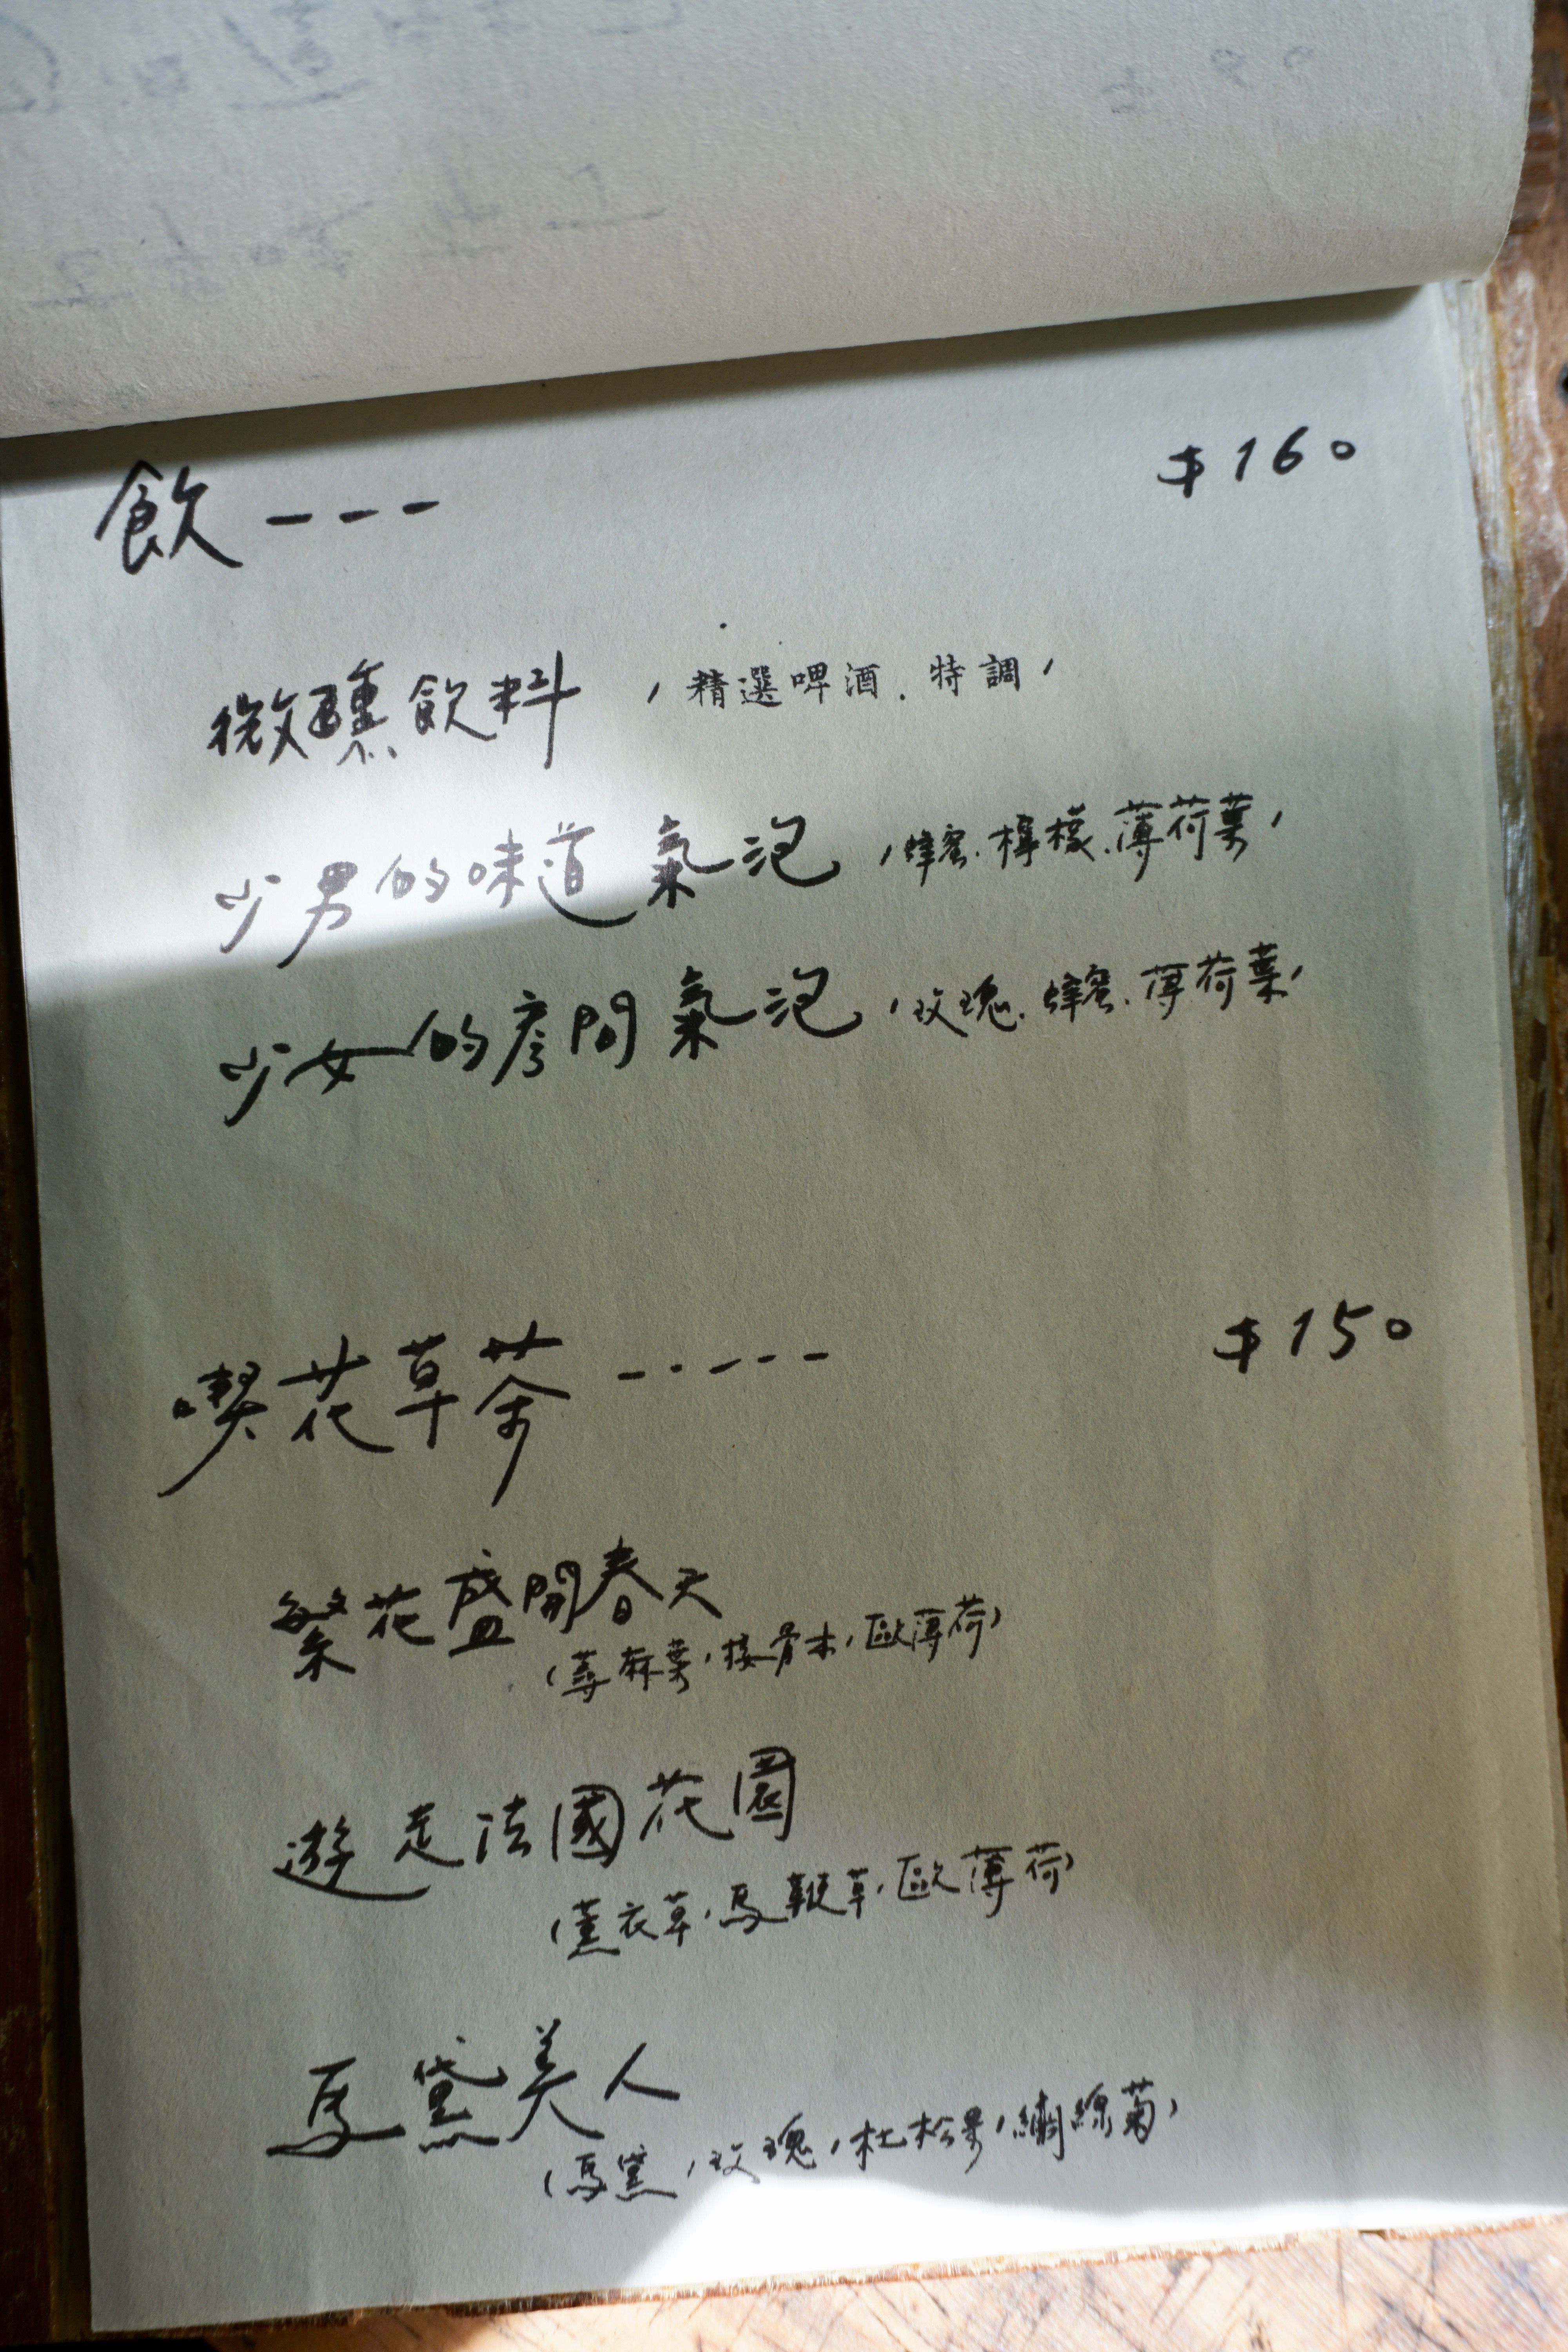 飲--- $160
微醺飲料 (精選啤酒.特調)
少男的味道氣泡 (蜂蜜.檸檬.薄荷葉)
少女的房間氣泡 (玫瑰.蜂蜜.薄荷葉)
喫花草茶----- $150
繁花盛開春天
(蕁麻葉,接骨木,歐薄荷)
遊走法國花園
(薰衣草,馬鞭草,歐薄荷)
馬黛美人
(馬黛,玫瑰,杜松果,繡線菊)